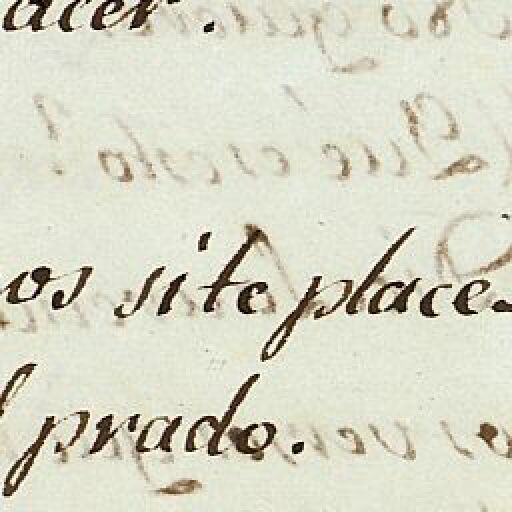 acer.
os si te place
l prado.